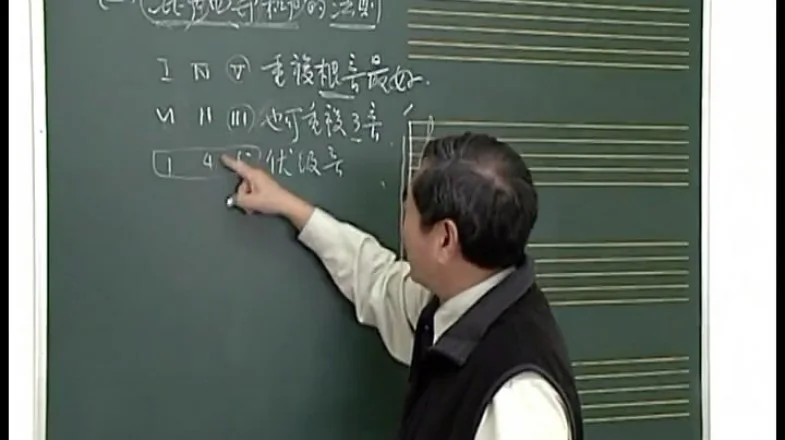 的法則
I IV V 重複根音最好.
VI II III 也可重複3音
1 4 5 優級音